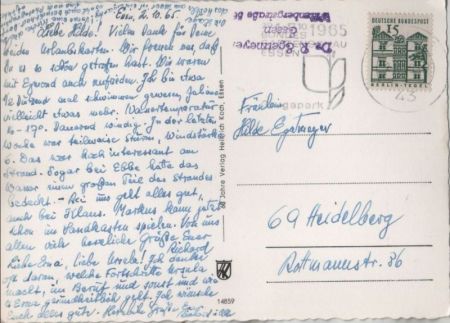 Essen, 2.10.65
Liebe Hilde! Vielen Dank für Deine
beiden Urlaubskarten. Wir freuen uns, daß
Du es so schön getroffen hast. Wir waren
mit Egmond auch zufrieden. Ich bin etwa
½ Dutzend mal schwimmen gewesen, Johann
vielleicht etwas mehr. Wassertemperatur
16-17°. Dauernd windig. In der letzten
Woche war teilweise Sturm, Windstärke
6. Das war hochinteressant am
Strand. Sogar bei Ebbe hatte das
Wasser einen großen Teil des Strandes
bedeckt. - Bei uns geht alles gut,
auch bei Klaus. Markus kann jetzt
schon im Sandkasten spielen. Von uns
allen viele herzliche Grüße Euer
Richard
Liebe Eva, liebe Ursela! Ich denke
oft daran, welche Fortschritte Ursela
macht, im Beruf und sonst und wie
es Eva gesundheitlich geht. Ich wünsche
Euch alles gute. Herzliche Grüße Euer
60 Jahre Verlag Heinrich Koch, Essen
14859
Dr. R. Egtmeyer
Essen
1965
ESSEN
gapark
DEUTSCHE BUNDESPOST
15
BERLIN-TEGEL
43
Fräulein
Hilde Egtmeyer
69 Heidelberg
Rottmannstr. 36